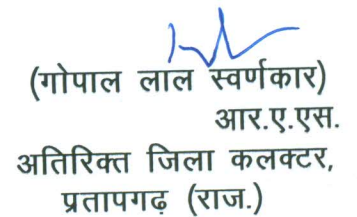 (गोपाल लाल स्वर्णकार)
आर.ए.एस.
अतिरिक्त जिला कलक्टर,
प्रतापगढ़ (राज.)